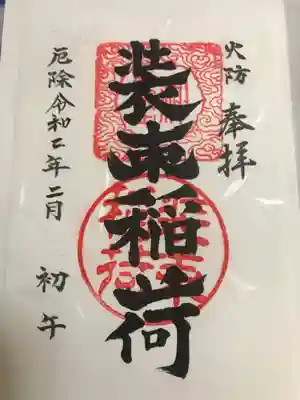 火防 奉拝
装束稲荷
厄除令和二年二月 初午